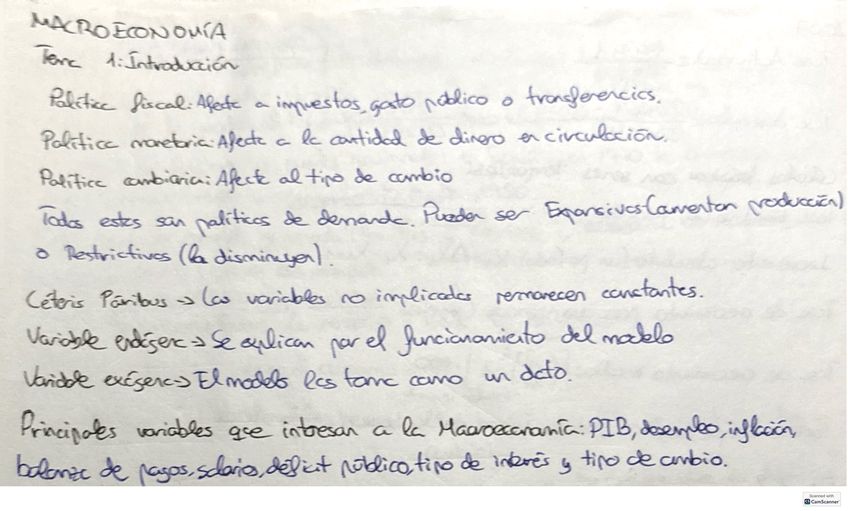 MACROECONOMÍA
Tema 1: Introducción
Política fiscal: Afecta a impuestos, gasto público o transferencias.
Política monetaria: Afecta a la cantidad de dinero en circulación.
Política cambiaria: Afecta al tipo de cambio
Todas estas son políticas de demanda. Pueden ser Expansivas (aumentan producción)
o Restrictivas (la disminuyen).
Céteris Páribus → Las variables no implicadas permanecen constantes.
Variable endógena → Se explican por el funcionamiento del modelo
Variable exógena → El modelo las toma como un dato.
Principales variables que interesan a la Macroeconomía: PIB, desempleo, inflación,
balanza de pagos, salario, déficit público, tipo de interés y tipo de cambio.
Scanned with
CamScanner